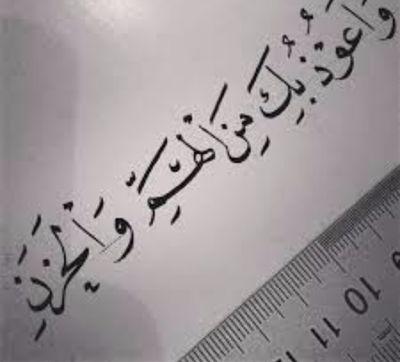 وَأَعُوذُ بِكَ مِنَ الْهَمِّ وَالْحَزَنِ
9 10 11 12